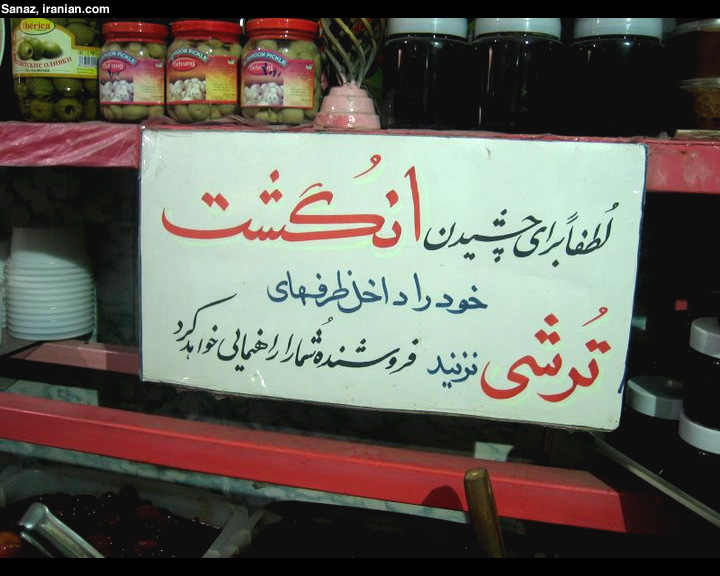 Sanaz, iranian.com
Ibérica
MUSHROOM PICKLE
Behrang
MUSHROOM PICKLE
Behrang
لطفاً برای چشیدن انگُشت
خود را داخل ظرفهای
تُرشی نزنید فروشنده شُما را راهنمایی خواهد کرد